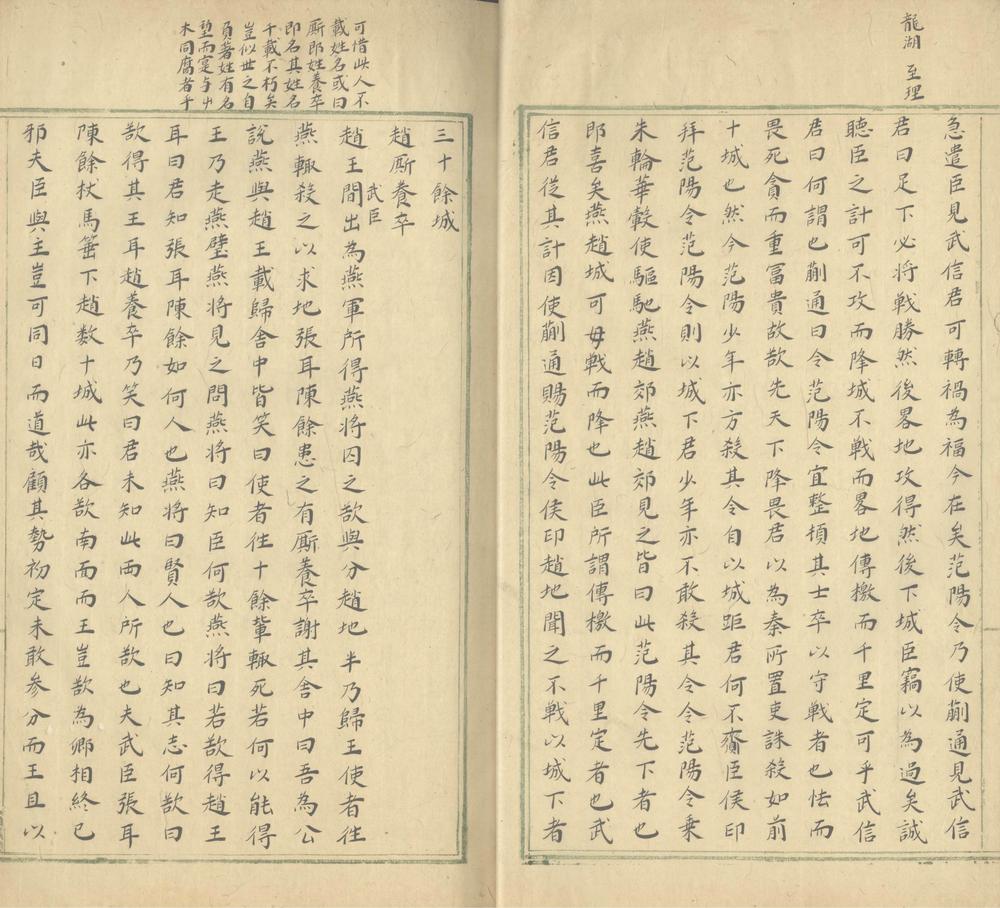 龍湖 至理
急遣臣見武信君可轉禍為福今在矣范陽令乃使蒯通見武信
君曰足下必将戰勝然後畧地攻得然後下城臣竊以為過矣誠
聽臣之計可不攻而降城不戰而畧地傳檄而千里定可乎武信
君曰何謂也蒯通曰令范陽令宜整頓其士卒以守戰者也怯而
畏死貪而重冨貴故欲先天下降畏君以為秦所置吏誅殺如前
十城也然今范陽少年亦方殺其令自以城距君何不賫臣侯印
拜范陽令范陽令則以城下君少年亦不敢殺其令令范陽令乗
朱輪華轂使驅馳燕趙郊燕趙郊見之皆曰此范陽令先下者也
即喜矣燕趙城可毋戰而降也此臣所謂傳檄而千里定者也武
信君從其計因使蒯通賜范陽令侯印趙地聞之不戰以城下者
可惜此人不
載姓名或曰
厮即姓養卒
即名其姓名
千載不朽矣
豈似世之自
負著姓有名
望而寔与艸
木同腐者乎
三十餘城
趙厮養卒
武臣
趙王間出為燕軍所得燕将囚之欲與分趙地半乃歸王使者往
燕輙殺之以求地張耳陳餘患之有厮養卒謝其舎中曰吾為公
說燕與趙王載歸舎中皆笑曰使者徃十餘軰輙死若何以能得
王乃走燕壁燕将見之問燕将曰知臣何欲燕将曰若欲得趙王
耳曰君知張耳陳餘如何人也燕将曰賢人也曰知其志何欲曰
欲得其王耳趙養卒乃笑曰君未知此兩人所欲也夫武臣張耳
陳餘杖馬箠下趙数十城此亦各欲南面而王豈欲為卿相終已
邪夫臣與主豈可同日而道哉顧其勢初定未敢参分而王且以